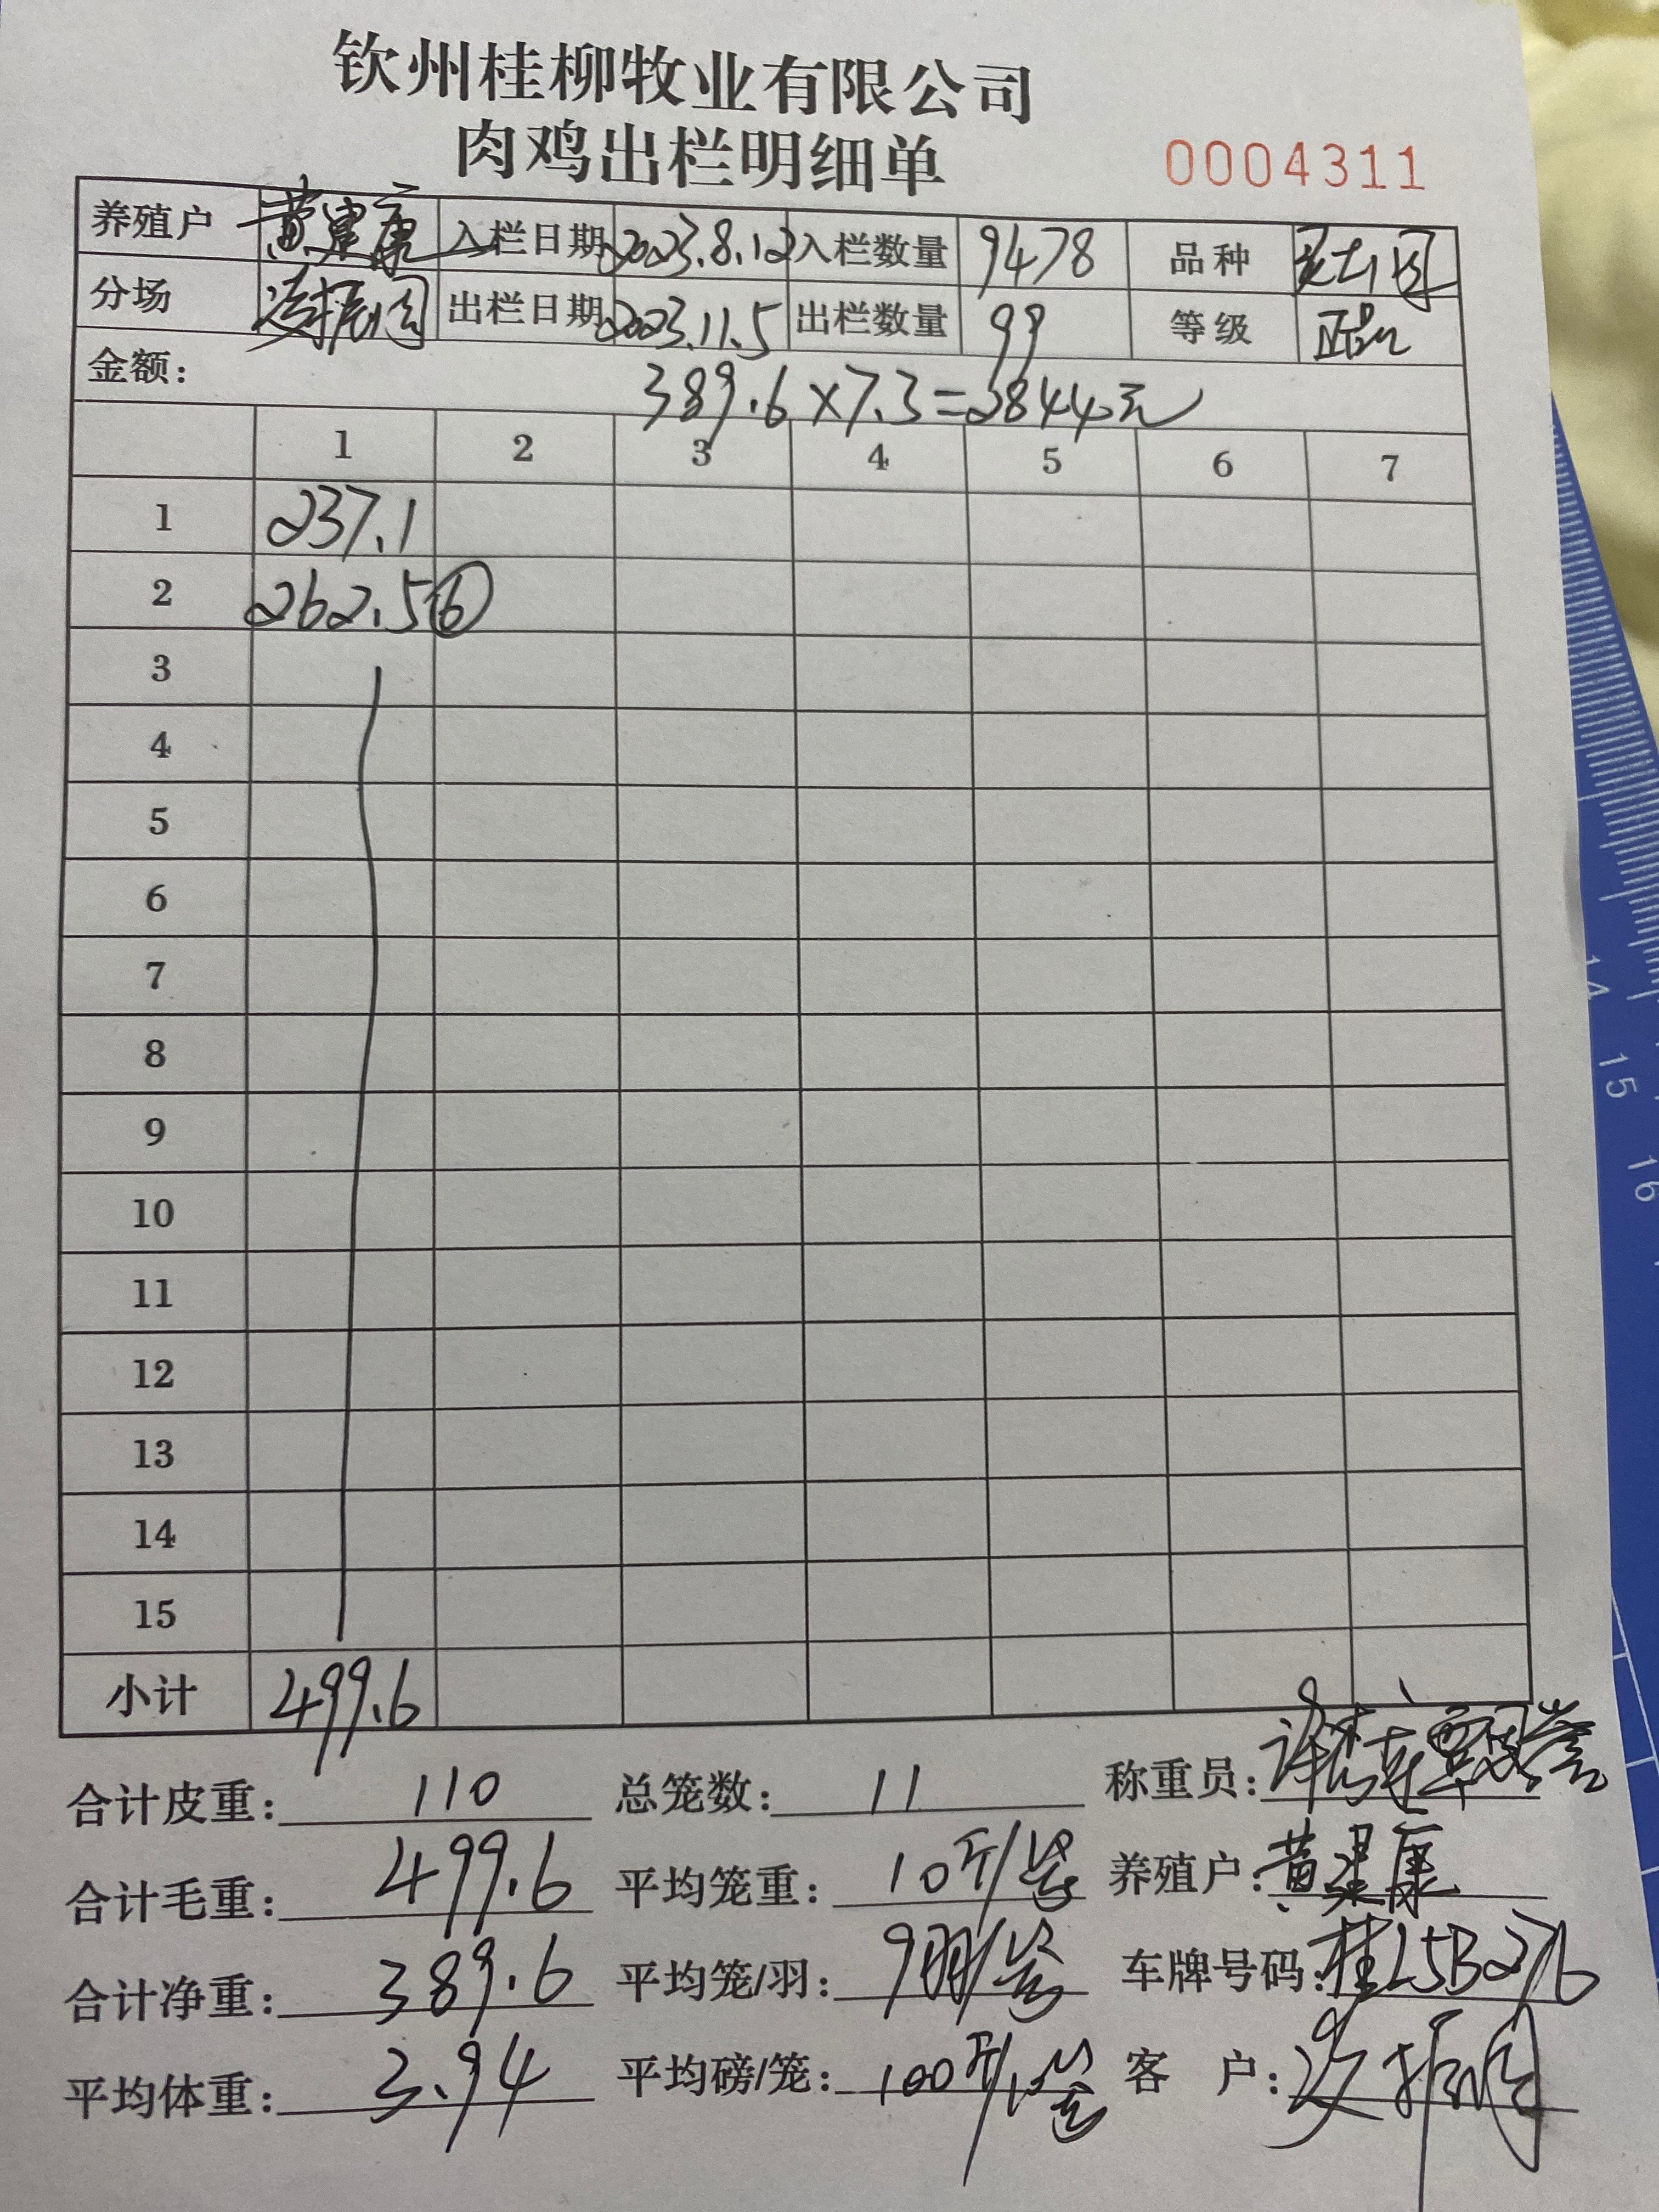 钦州桂柳牧业有限公司
肉鸡出栏明细单 0004311
养殖户 黄星康 入栏日期 2023.8.12 入栏数量 9478 品种
分场 出栏日期 2023.11.5 出栏数量 99 等级 正品
金额: 389.6×7.3=2844元
1 2 3 4 5 6 7
1 237.1
2 262.5 ⑥
3
4
5
6
7
8
9
10
11
12
13
14
15
小计 499.6
合计皮重: 110 总笼数: 11 称重员:
合计毛重: 499.6 平均笼重: 10斤/笼 养殖户: 黄星康
合计净重: 389.6 平均笼/羽: 9羽/笼 车牌号码: 桂L5B276
平均体重: 3.94 平均磅/笼: 100斤/笼 客户:
14
15
16